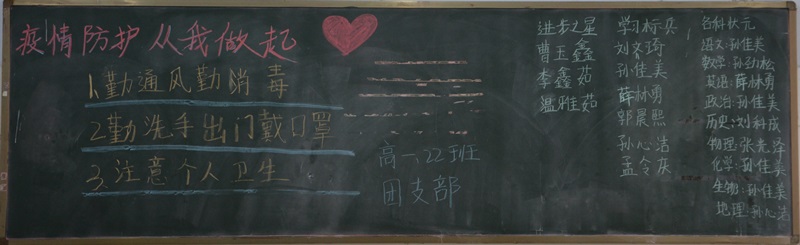 疫情防护从我做起
1.勤通风勤消毒
2.勤洗手出门戴口罩
3.注意个人卫生
高一.22班
团支部
进步之星
曹玉鑫
李鑫茹
温雅茹
学习标兵
刘齐琦
孙佳美
薛林勇
郭晨熙
孙心洁
孟令灰
各科状元
语文:孙佳美
数学:孙劲松
英语:薛林勇
政治:孙佳美
历史:刘科成
物理:张尧泽
化学:孙佳美
生物:孙佳美
地理:孙心洁